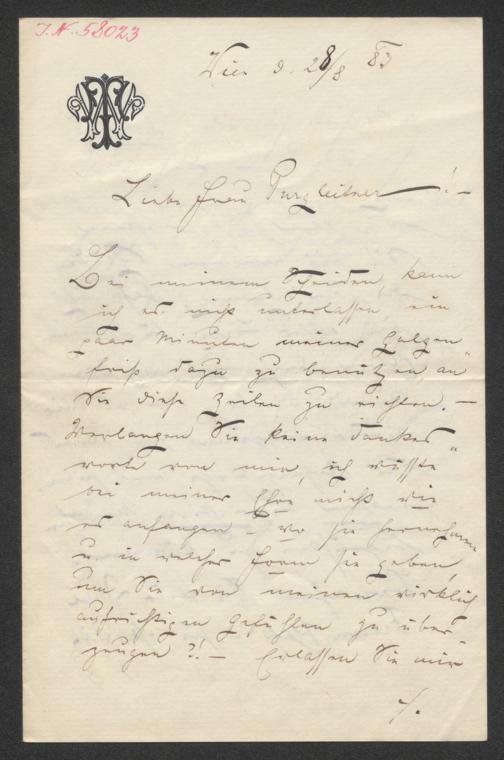 I.N. 58023
Wien d. 28/8 83
Liebe Frau Purgleitner! —
Bei meinem Scheiden, kann
ich es nicht unterlassen, ein
paar Minuten meiner Galgen
frist dazu zu benützen, an
Sie diese Zeilen zu richten. —
Verlangen Sie keine Dankes
worte von mir, ich wüsste
bei meiner Ehre nicht wie
es anfangen — wo sie hernehmen
u. in welcher Form sie geben,
um Sie von meinen wirklich
aufrichtigen Gefühlen zu über
zeugen?! — Erlassen Sie mir
./.